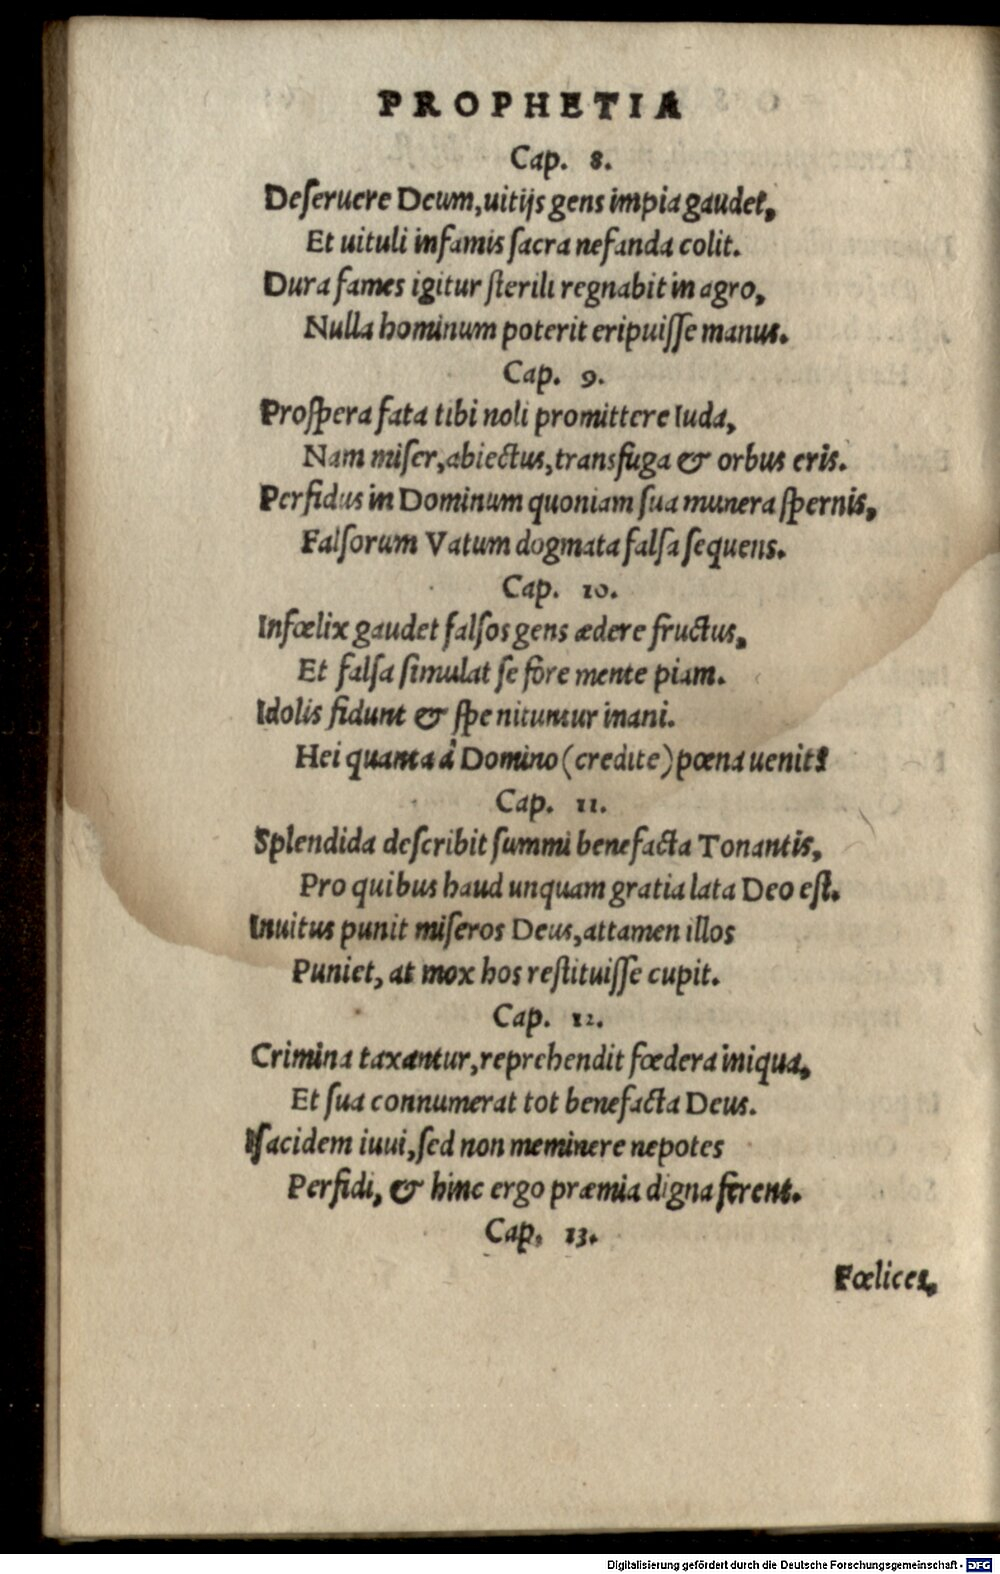 PROPHETIA
Cap. 8.
Deſeruere Deum, uitijs gens impia gaudet,
Et uituli infamis ſacra nefanda colit.
Dura fames igitur ſterili regnabit in agro,
Nulla hominum poterit eripuiſſe manus.
Cap. 9.
Proſpera fata tibi noli promittere Iuda,
Nam miſer, abiectus, transfuga & orbus eris.
Perfidus in Dominum quoniam ſua munera ſpernis,
Falſorum Vatum dogmata falſa ſequens.
Cap. 10.
Infœlix gaudet falſos gens ædere fructus,
Et falſa ſimulat ſe fore mente piam.
Idolis fidunt & ſpe nituntur inani.
Hei quanta à Domino (credite) pœna uenit!
Cap. 11.
Splendida deſcribit ſummi benefacta Tonantis,
Pro quibus haud unquam gratia lata Deo eſt.
Inuitus punit miſeros Deus, attamen illos
Puniet, at mox hos reſtituiſſe cupit.
Cap. 12.
Crimina taxantur, reprehendit fœdera iniqua,
Et ſua connumerat tot benefacta Deus.
Iſacidem iuui, ſed non meminere nepotes
Perfidi, & hinc ergo præmia digna ferent.
Cap. 13.
Fœlices,
Digitalisierung gefördert durch die Deutsche Forschungsgemeinschaft - DFG